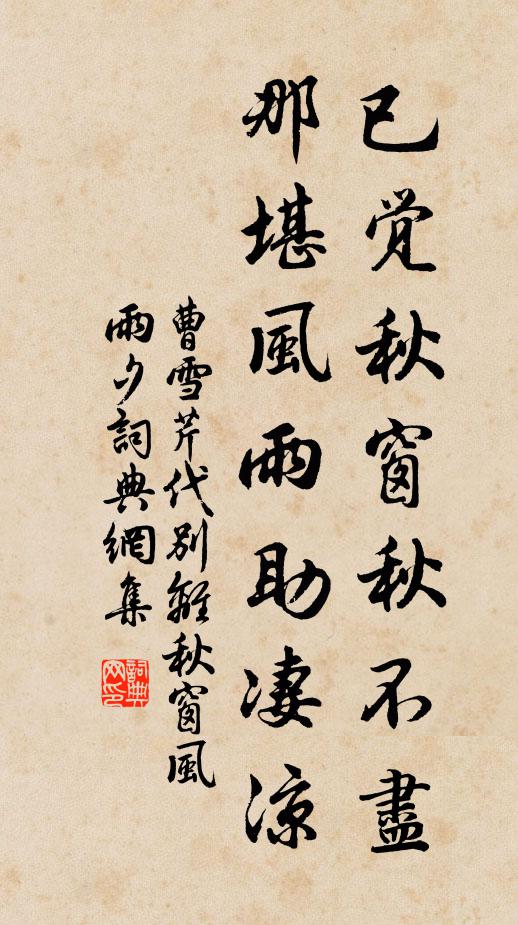 已覚秋窗秋不盡
那堪風雨助凄涼
曹雪芹代别離秋窗風
雨夕詞典網集
詞典
网印